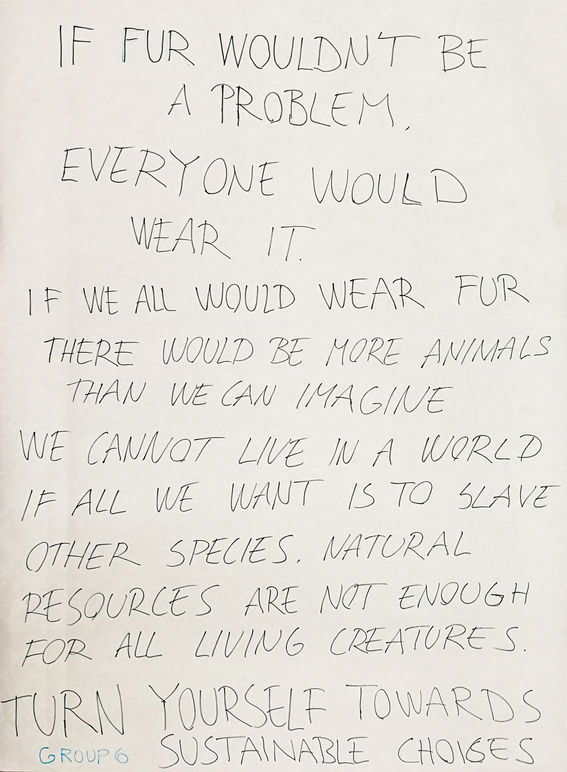 IF FUR WOULDN'T BE
A PROBLEM,
EVERYONE WOULD
WEAR IT.
IF WE ALL WOULD WEAR FUR
THERE WOULD BE MORE ANIMALS
THAN WE CAN IMAGINE
WE CANNOT LIVE IN A WORLD
IF ALL WE WANT IS TO SLAVE
OTHER SPECIES. NATURAL
RESOURCES ARE NOT ENOUGH
FOR ALL LIVING CREATURES.
TURN YOURSELF TOWARDS
GROUP 6 SUSTAINABLE CHOICES